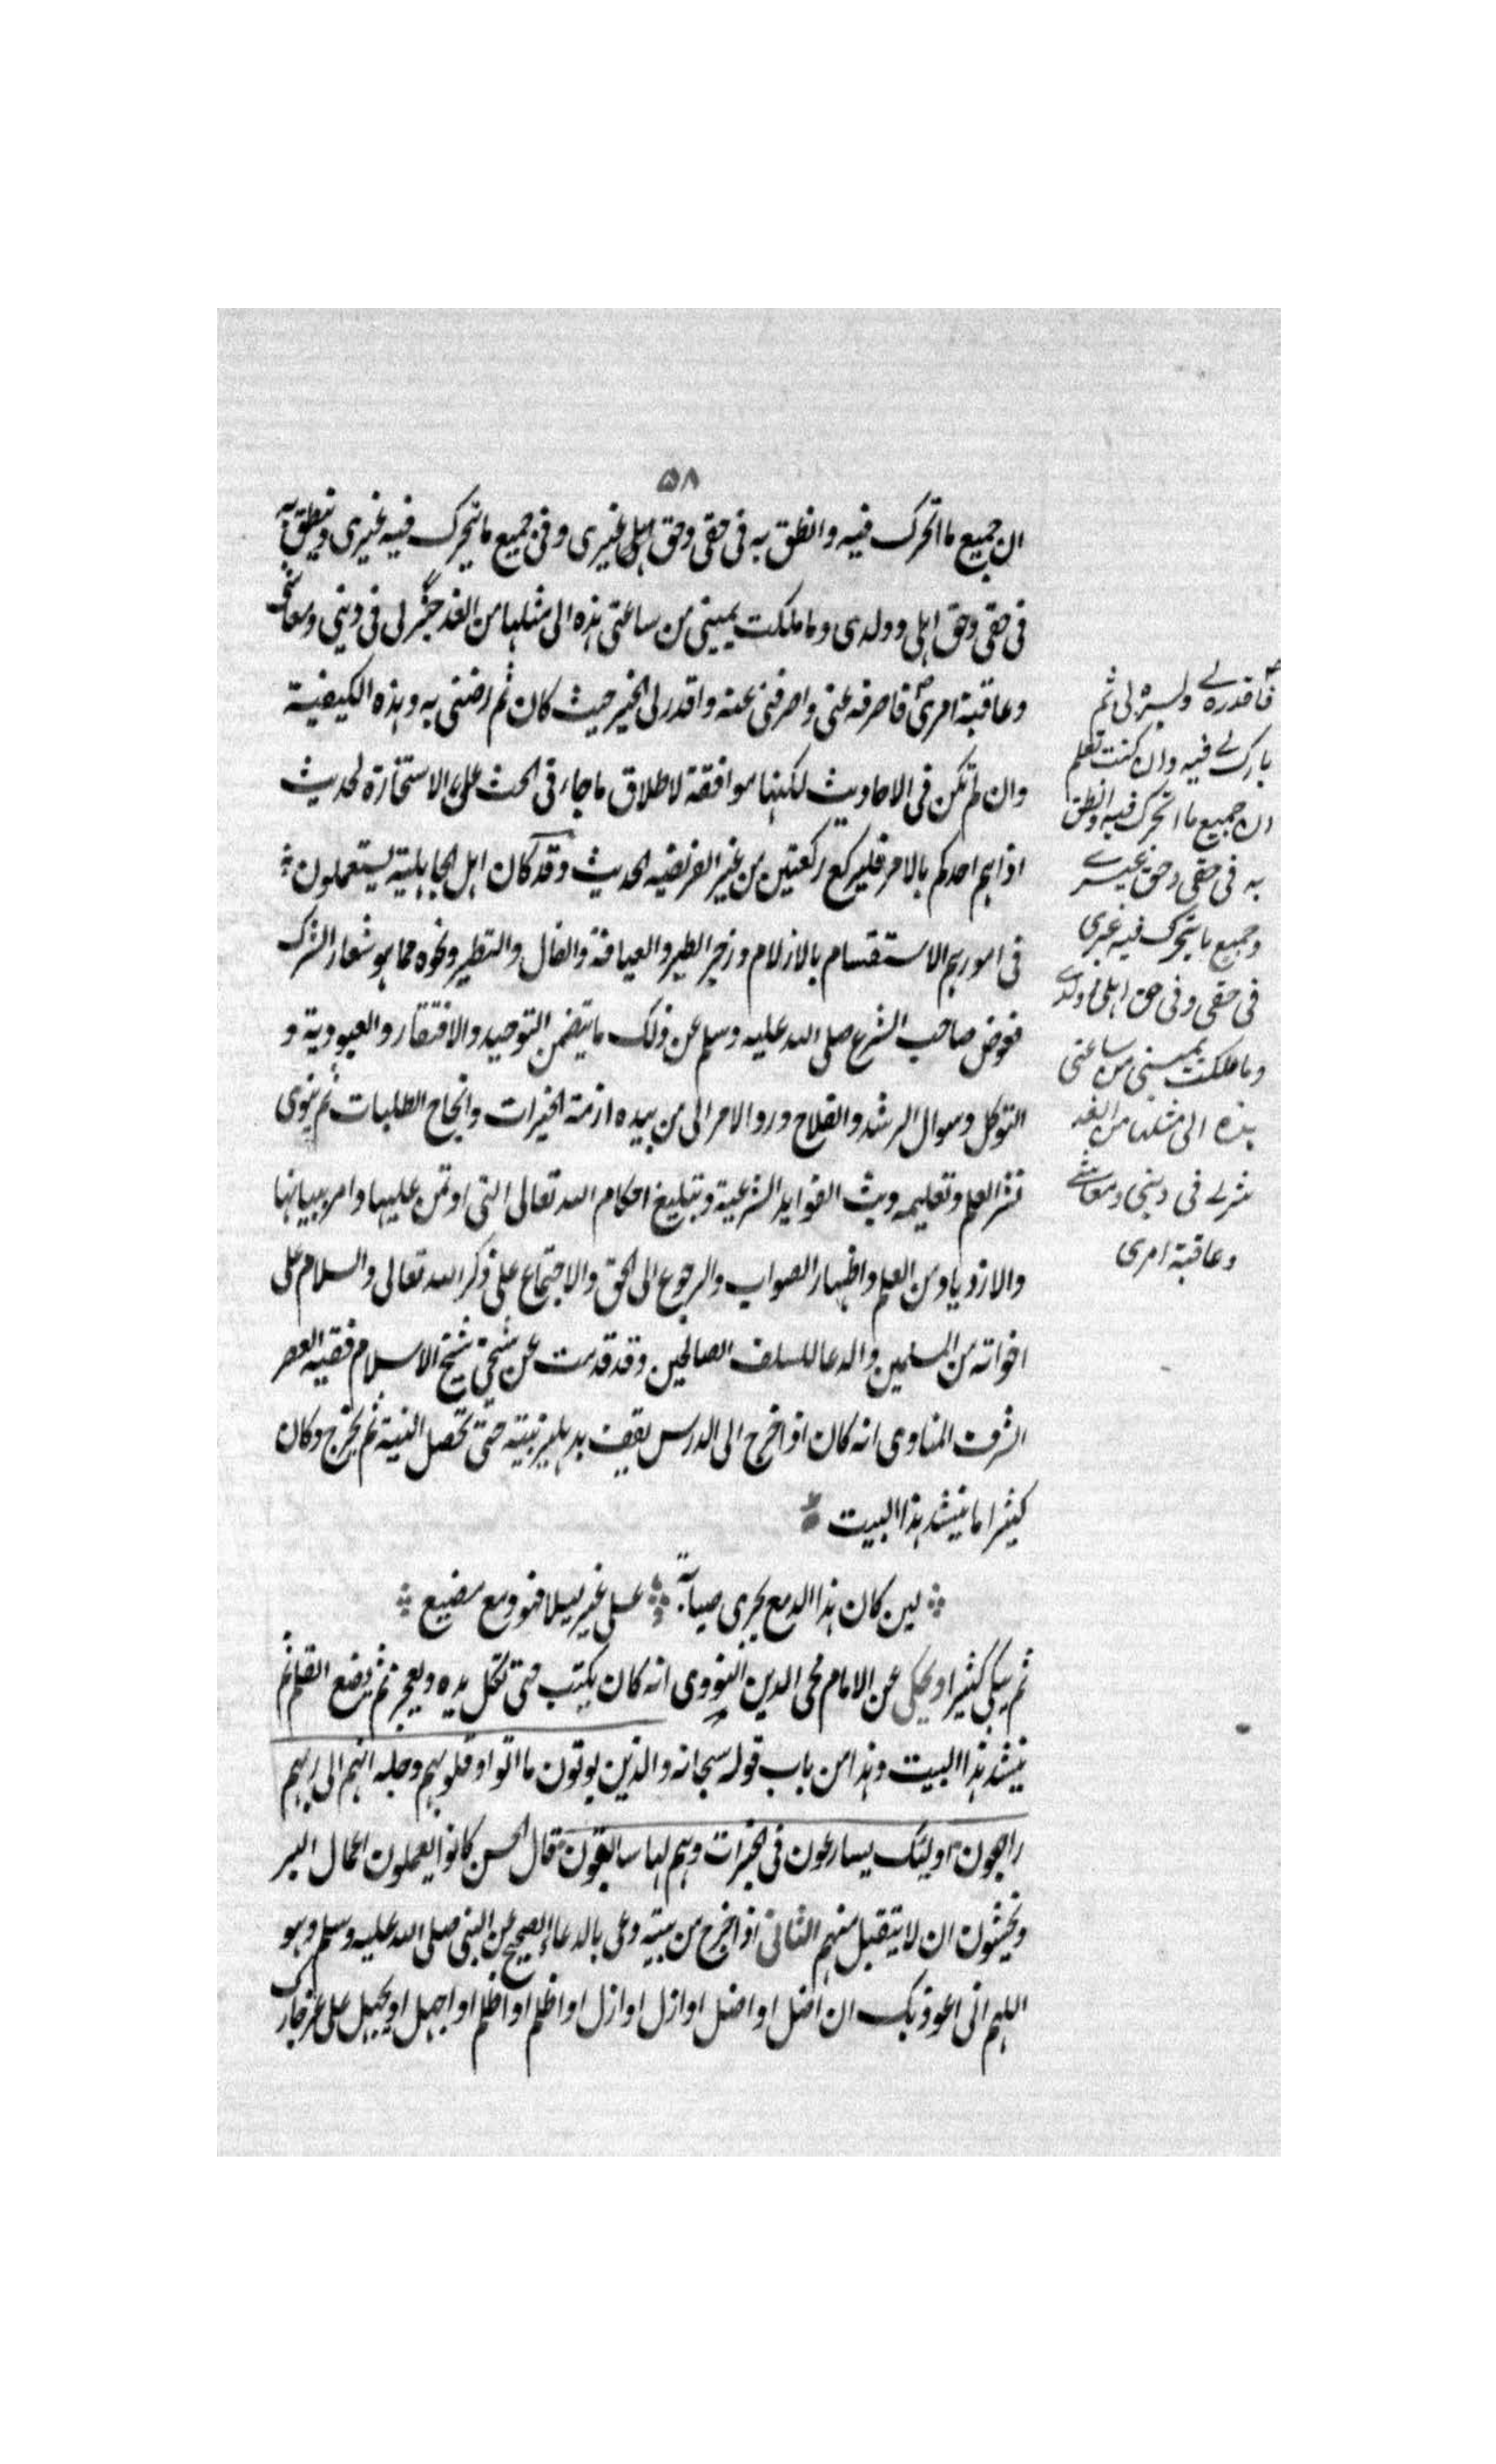 ٥٨
ان جميع ما اتحرك فيه وانطق به فى حقى وحق اهلى غيرى وفى جميع ما يتحرك فيه غيرى وينطق به
فى حقى وحق اهلى وولدى وما ملكت يمينى من ساعتى هذه الى مثلها من الغد خير لى فى دينى ومعاشى
وعاقبة امرى فاصرفه عنى واصرفنى عنه واقدر لى الخير حيث كان ثم ارضنى به وهذه الكيفية
وان لم تكن فى الاحاديث لكنها موافقة لاطلاق ما جاء فى الحث على الاستخارة لحديث
اذا هم احدكم بالامر فليركع ركعتين من غير الفريضه الحديث وقد كان اهل الجاهلية يستعملون
فى امورهم الاستقسام بالازلام وزجر الطير والعيافة والفال والتطير ونحوه مما هو شعار الشرك
فعوض صاحب الشرع صلى الله عليه وسلم عن ذلك ما يتضمن التوحيد والافتقار والعبودية و
التوكل وسوال الرشد والفلاح ورد الامر الى من بيده ازمة الخيرات وانجاح الطلبات ثم ينوى
نشر العلم وتعليمه وبث الفوايد الشرعية وتبليغ احكام الله تعالى التى اوتمن عليها وامر ببيانها
والازدياد من العلم واظهار الصواب والرجوع الى الحق والاجتماع على ذكر الله تعالى والسلام على
اخوانه من المسلمين والدعا للسلف الصالحين وقد قدمت عن شيخى شيخ الاسلام فقيه العصر
الشرف المناوى انه كان اذا خرج الى الدرس يقف بدهليز بيته حتى تحصل النية ثم يخرج وكان
كثيرا ما ينشد هذا البيت
لين كان هذا الدمع يجرى صبابة على غير ليلا فهو دمع مضيع
ثم يبكى كثيرا ويحكى عن الامام محى الدين النووى انه كان يكتب حتى تكل يده ويعجز ثم يضع القلم ثم
ينشد هذا البيت وهذا من باب قوله سبحانه والذين يوتون ما اتوا وقلوبهم وجلة انهم الى ربهم
راجعون اوليك يسارعون فى الخيرات وهم لها سابقون قال الحسن كانوا يعملون اعمال البر
ويخشون ان لا يتقبل منهم الثانى اذا خرج من بيته دعى بالدعاء الصحيح عن النبى صلى الله عليه وسلم وهو
اللهم انى اعوذ بك ان اضل او اضل او ازل او ازل او اظلم او اظلم او اجهل او يجهل على عز جارك
فاقدره لى ويسره لى ثم
بارك لى فيه وان كنت تعلم
ان جميع ما اتحرك فيه وانطق
به فى حقى وحق غيرى
وجميع ما يتحرك فيه غيرى
فى حقى وفى حق اهلى وولدى
وما ملكت يمينى من ساعتى
هذه الى مثلها من الغد
شر لى فى دينى ومعاشى
وعاقبة امرى